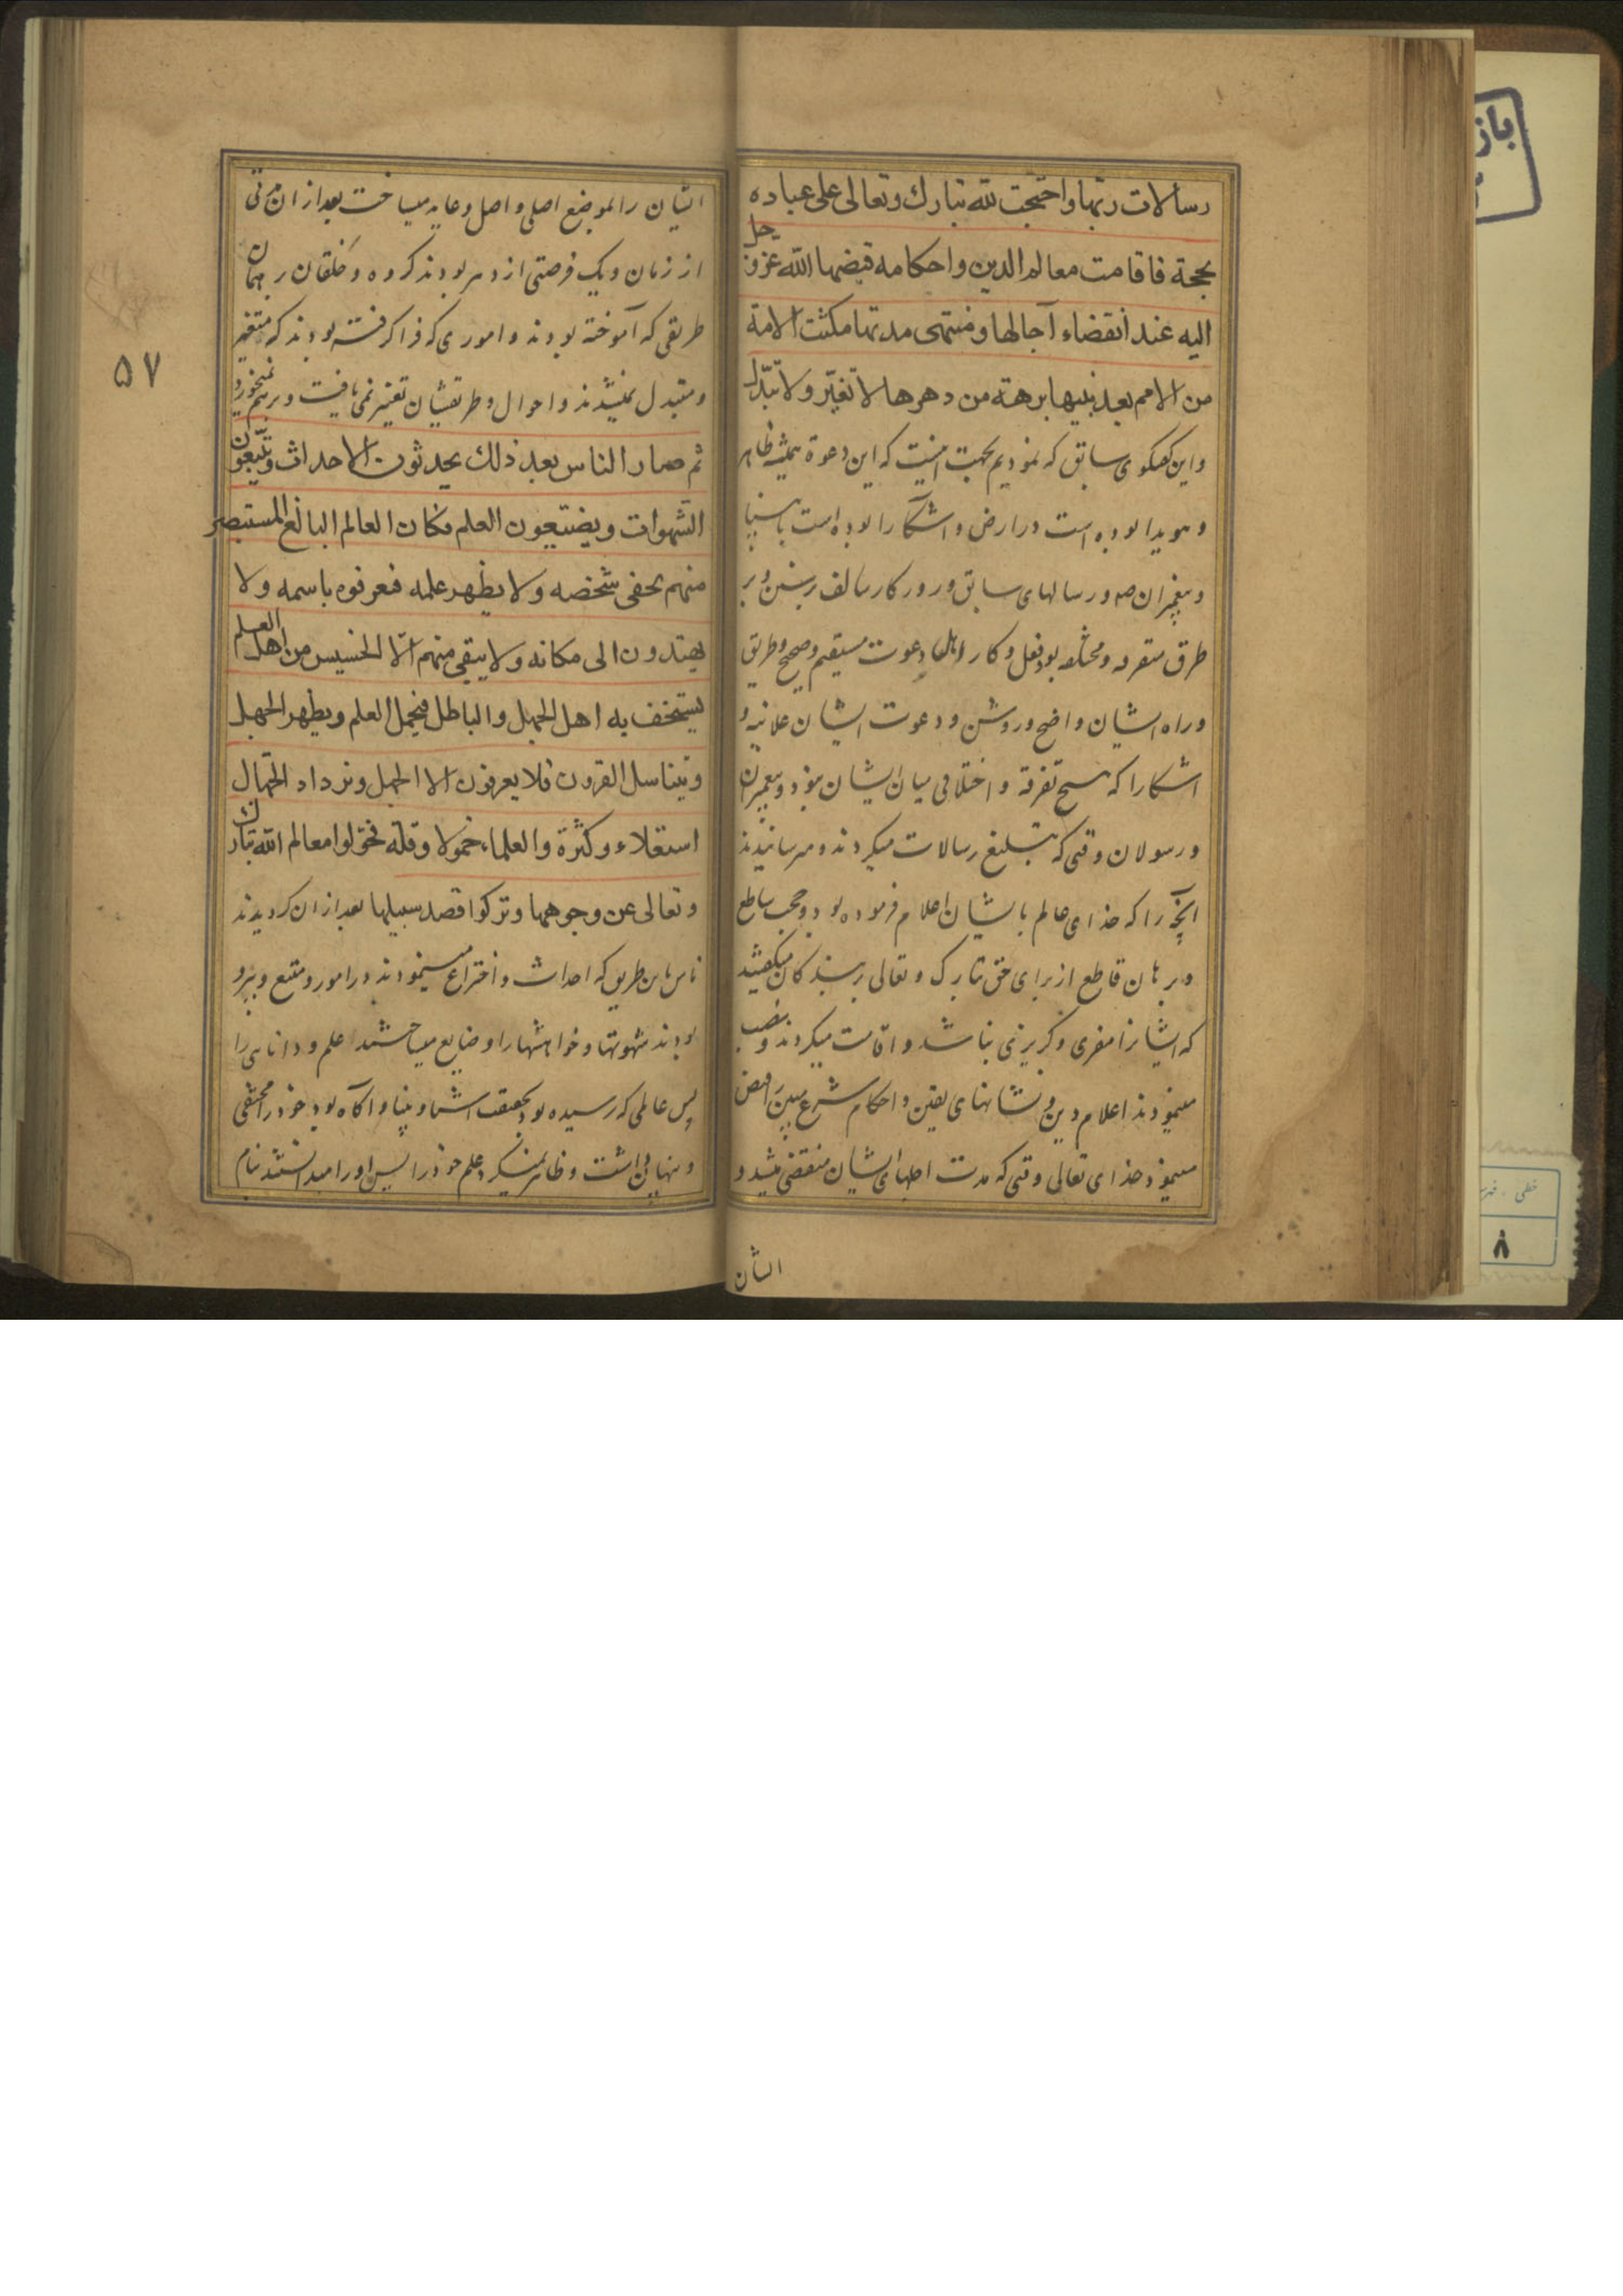 رسالات ربها واحتجت لله تبارك وتعالى على عباده
بحجة فاقامت معالم الدين واحكامه قبضها الله عز و جل
اليه عند انقضاء آجالها ومنتهى مدتها مكثت الامة
من الامم بعد نبيها برهة من دهرها لا تغيّر ولا تبدّل
واين گفتگوی سابق که نموديم بجهت اينست که اين دعوة هميشه ظاهر
وهويدا بوده است در ارض و اشکارا بوده است با
وپيغمبران و رسالهای سابق و روزکار سالف
طرق متفرقه و مختلفه بود فعل و کار دعوت مستقيم و صحيح و طريق
وراه ايشان واضح و روشن و دعوت ايشان علانيه و
اشکارا که هيچ تفرقه و اختلافی ميان ايشان نبود و پيغمبران
ورسولان وقتی که تبليغ رسالات ميکردند و ميرسانيدند
آنچه را که خدای عالم با يشان اعلام فرموده بود و حجت ساطع
وبرهان قاطع از برای حق تبارک و تعالی بر بندکان ميکفتند
که ايشانرا مفری و کريزی نباشد و اقامت ميکردند و نصب
مينمودند اعلام دين و نشانهای يقين و احکام شرع مبين را قبض
مينمود خدای تعالی وقتی که مدت اجلهای ايشان منقضی ميشد و
ايشان
ايشان را بموضع اصلی و اصل و عايد ميساخت بعد از ان
از زمان و يک فرصتی از دهر بودند کروه و خلقان بر همان
طريقی که آموخته بودند و اموری که فرا کرفته بودند که متغير
ومتبدل نميشدند و احوال و طريقشان تغيير نمی يافت و بر هم نميخورد
ثم صار الناس بعد ذلك يحدثون الاحداث ويتبعون
الشهوات ويضيّعون العلم فكان العالم البالغ المستبصر
منهم يخفى شخصه ولا يظهر علمه فعرفوه باسمه ولا
يهتدون الى مكانه ولا يبقى منهم الّا الخسيس من اهل العلم
يستخف به اهل الجهل والباطل فيخمل العلم ويظهر الجهل
ويتناسل القرون فلا يعرفون الا الجهل ويزداد الجهال
استعلاء وكثرة والعلماء خمولا وقلة فحولوا معالم الله تبارك
وتعالى عن وجوهها وتركوا قصد سبيلها بعد از ان کرديدند
ناس باين طريق که احداث و اختراع مينمودند در امور و متبع و پيرو
بودند شهوتها و خواهشها را و ضايع ميساختند علم و دانايی را
پس عالمی که رسيده بود بحقيقت اشيا و بينا و آکاه بود خود را مخفی
وپنهان داشت و ظاهر نميکرد علم خود را پس او را ميدانستند بنام
۵۷
باز
خطی
۸